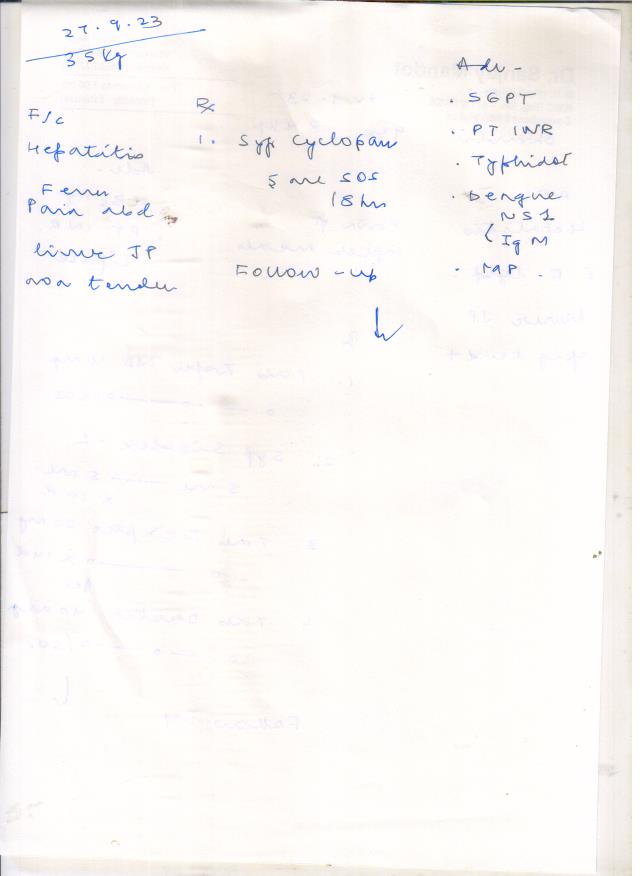 27.9.23
35 kg
F/c
Hepatitis
Fever
Pain abd
liver JP
non tender
Rx
1. Syp Cyclopam
5 ml SOS
18 hrs
Follow-up
Adv -
. SGPT
. PT INR
. Typhidot
. Dengue
NS1
IgM
. MP.